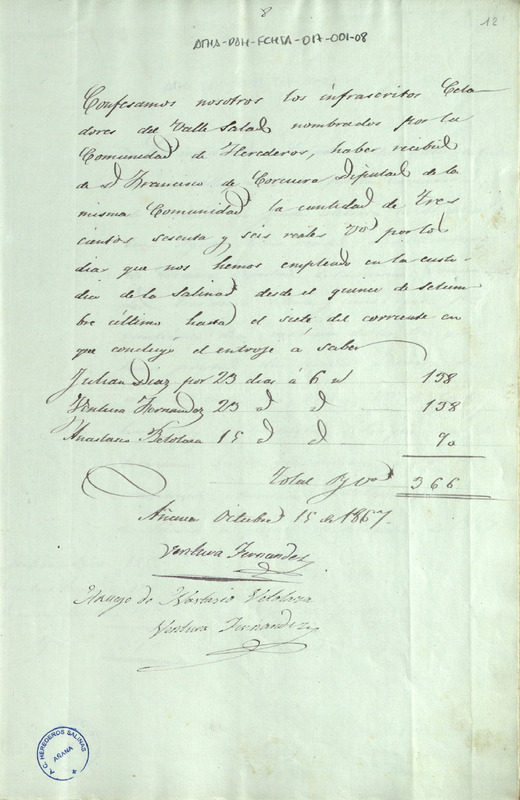 8
12
ATHA-DAH-FCHSA-017-001-08
Confesamos nosotros los infrascritos Cela
dores del Valle Salado nombrados por la
Comunidad de Herederos, haber recibido
de D. Francisco de Corcuera Diputado de la
misma Comunidad la cantidad de tres
cientos sesenta y seis reales Von por los
dias que nos hemos empleado en la custo-
dia de la Salinas desde el quince de Setiem
bre último hasta el siete del corriente en
que concluyó el entroje á saber
Julian Diaz por 23 dias á 6 rl 138
Ventura Fernandez 23 id id 138
Anastasio 15 id id 90
Total Rs von 366
Añana Octubre 15 de 1867.
Ventura Fernandez
Ruego de
Ventura Fernandez
A.C. HEREDEROS SALINAS
AÑANA